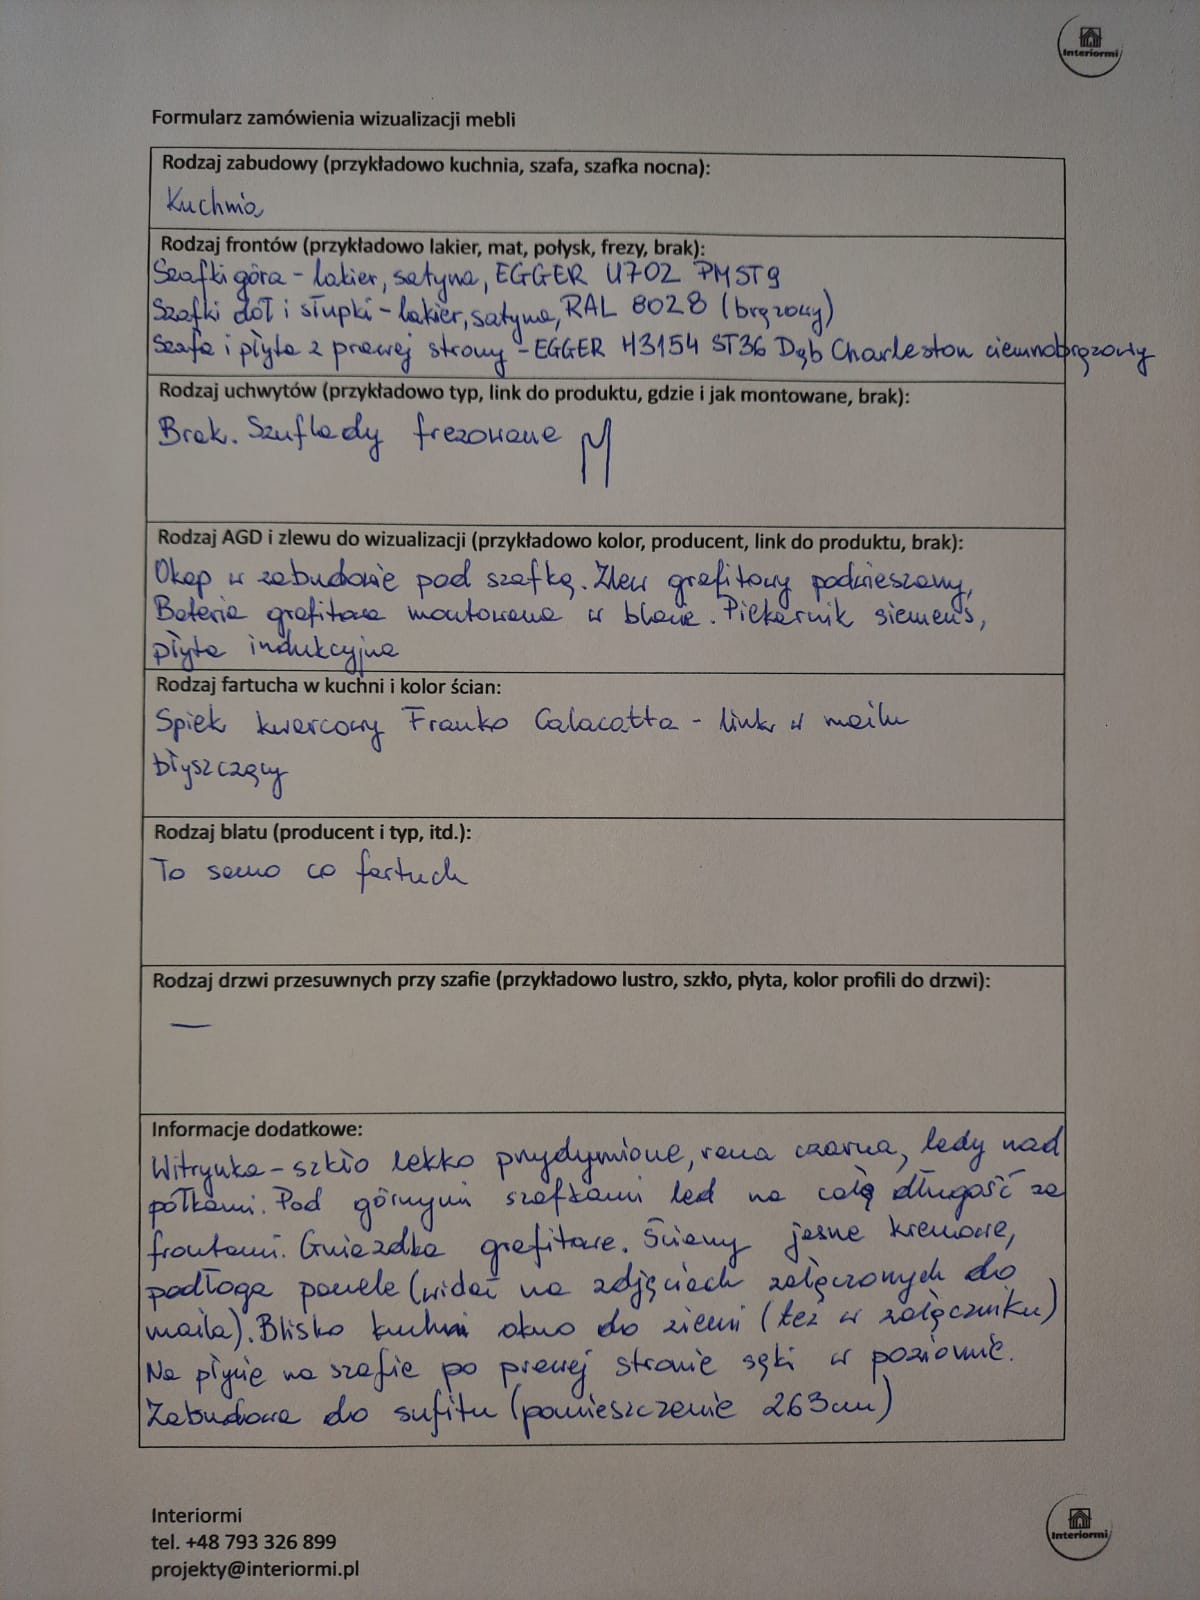 Interiormi
Formularz zamówienia wizualizacji mebli
Rodzaj zabudowy (przykładowo kuchnia, szafa, szafka nocna):
Kuchnia
Rodzaj frontów (przykładowo lakier, mat, połysk, frezy, brak):
Szafki góra - lakier, satyna, EGGER U702 PM ST9
Szafki dół i słupki - lakier, satyna, RAL 8028 (brązowy)
Szafa i płyta z prawej strony - EGGER H3154 ST36 Dąb Charleston ciemnobrązowy
Rodzaj uchwytów (przykładowo typ, link do produktu, gdzie i jak montowane, brak):
Brak. Szuflady frezowane
Rodzaj AGD i zlewu do wizualizacji (przykładowo kolor, producent, link do produktu, brak):
Okap w zabudowie pod szafką. Zlew grafitowy podwieszany,
Bateria grafitowa montowana w blacie. Piekarnik siemens,
płyta indukcyjna
Rodzaj fartucha w kuchni i kolor ścian:
Spiek kwarcowy Franko Calacatta - link w mailu
błyszczący
Rodzaj blatu (producent i typ, itd.):
To samo co fartuch
Rodzaj drzwi przesuwnych przy szafie (przykładowo lustro, szkło, płyta, kolor profili do drzwi):
—
Informacje dodatkowe:
Witrynka - szkło lekko przydymione, rama czarna, ledy nad
półkami. Pod górnymi szafkami led na całą długość za
frontami. Gniazdka grafitowe. Ściany jasne kremowe,
podłoga panele (widać na zdjęciach załączonych do
maila). Blisko kuchni okno do ziemi (też w załączniku)
Na płycie na szafie po prawej stronie sęki w poziomie.
Zabudowa do sufitu (pomieszczenie 263cm)
Interiormi
tel. +48 793 326 899
projekty@interiormi.pl
Interiormi